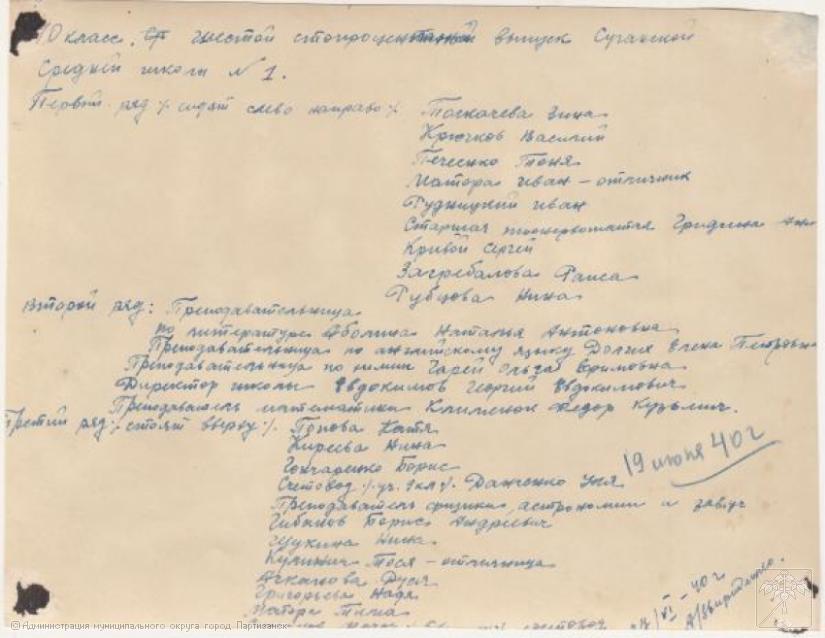 10 класс. шестой стопроцентный выпуск Сучанской
Средней школы № 1.
Первый ряд /. сидят слево направо /. Тоскачева Зина
Крючков Василий
Печенко Тоня
Матора Иван - отличник
Рудницкий Иван
Старшая пионервожатая Гридина
Кривой Сергей
Загребалова Раиса
Рубцова Нина
Второй ряд: Преподавательница
по литературе Аболина Наталья Антоновна
Преподавательница по английскому языку Долгия Елена Петровна
Преподавательница по химии Гарей Ольга Ефимовна
Директор школы Евдокимов Георгий Евдокимович
Преподаватель математики Клименюк Федор Кузьмич.
Третий ряд /. стоят вверху /. Попова Катя
Киреева Нина
Гончаренко Борис
Счетовод /. уч. 9 кл /. Данченко
19 июня 40 г
Преподаватель физики, астрономии и завуч
Борис Андреевич
Щукина Нина
Тося - отличница
Дуся
Григорьева Надя
Матора
VI - 40 г
© Администрация муниципального округа город Партизанск